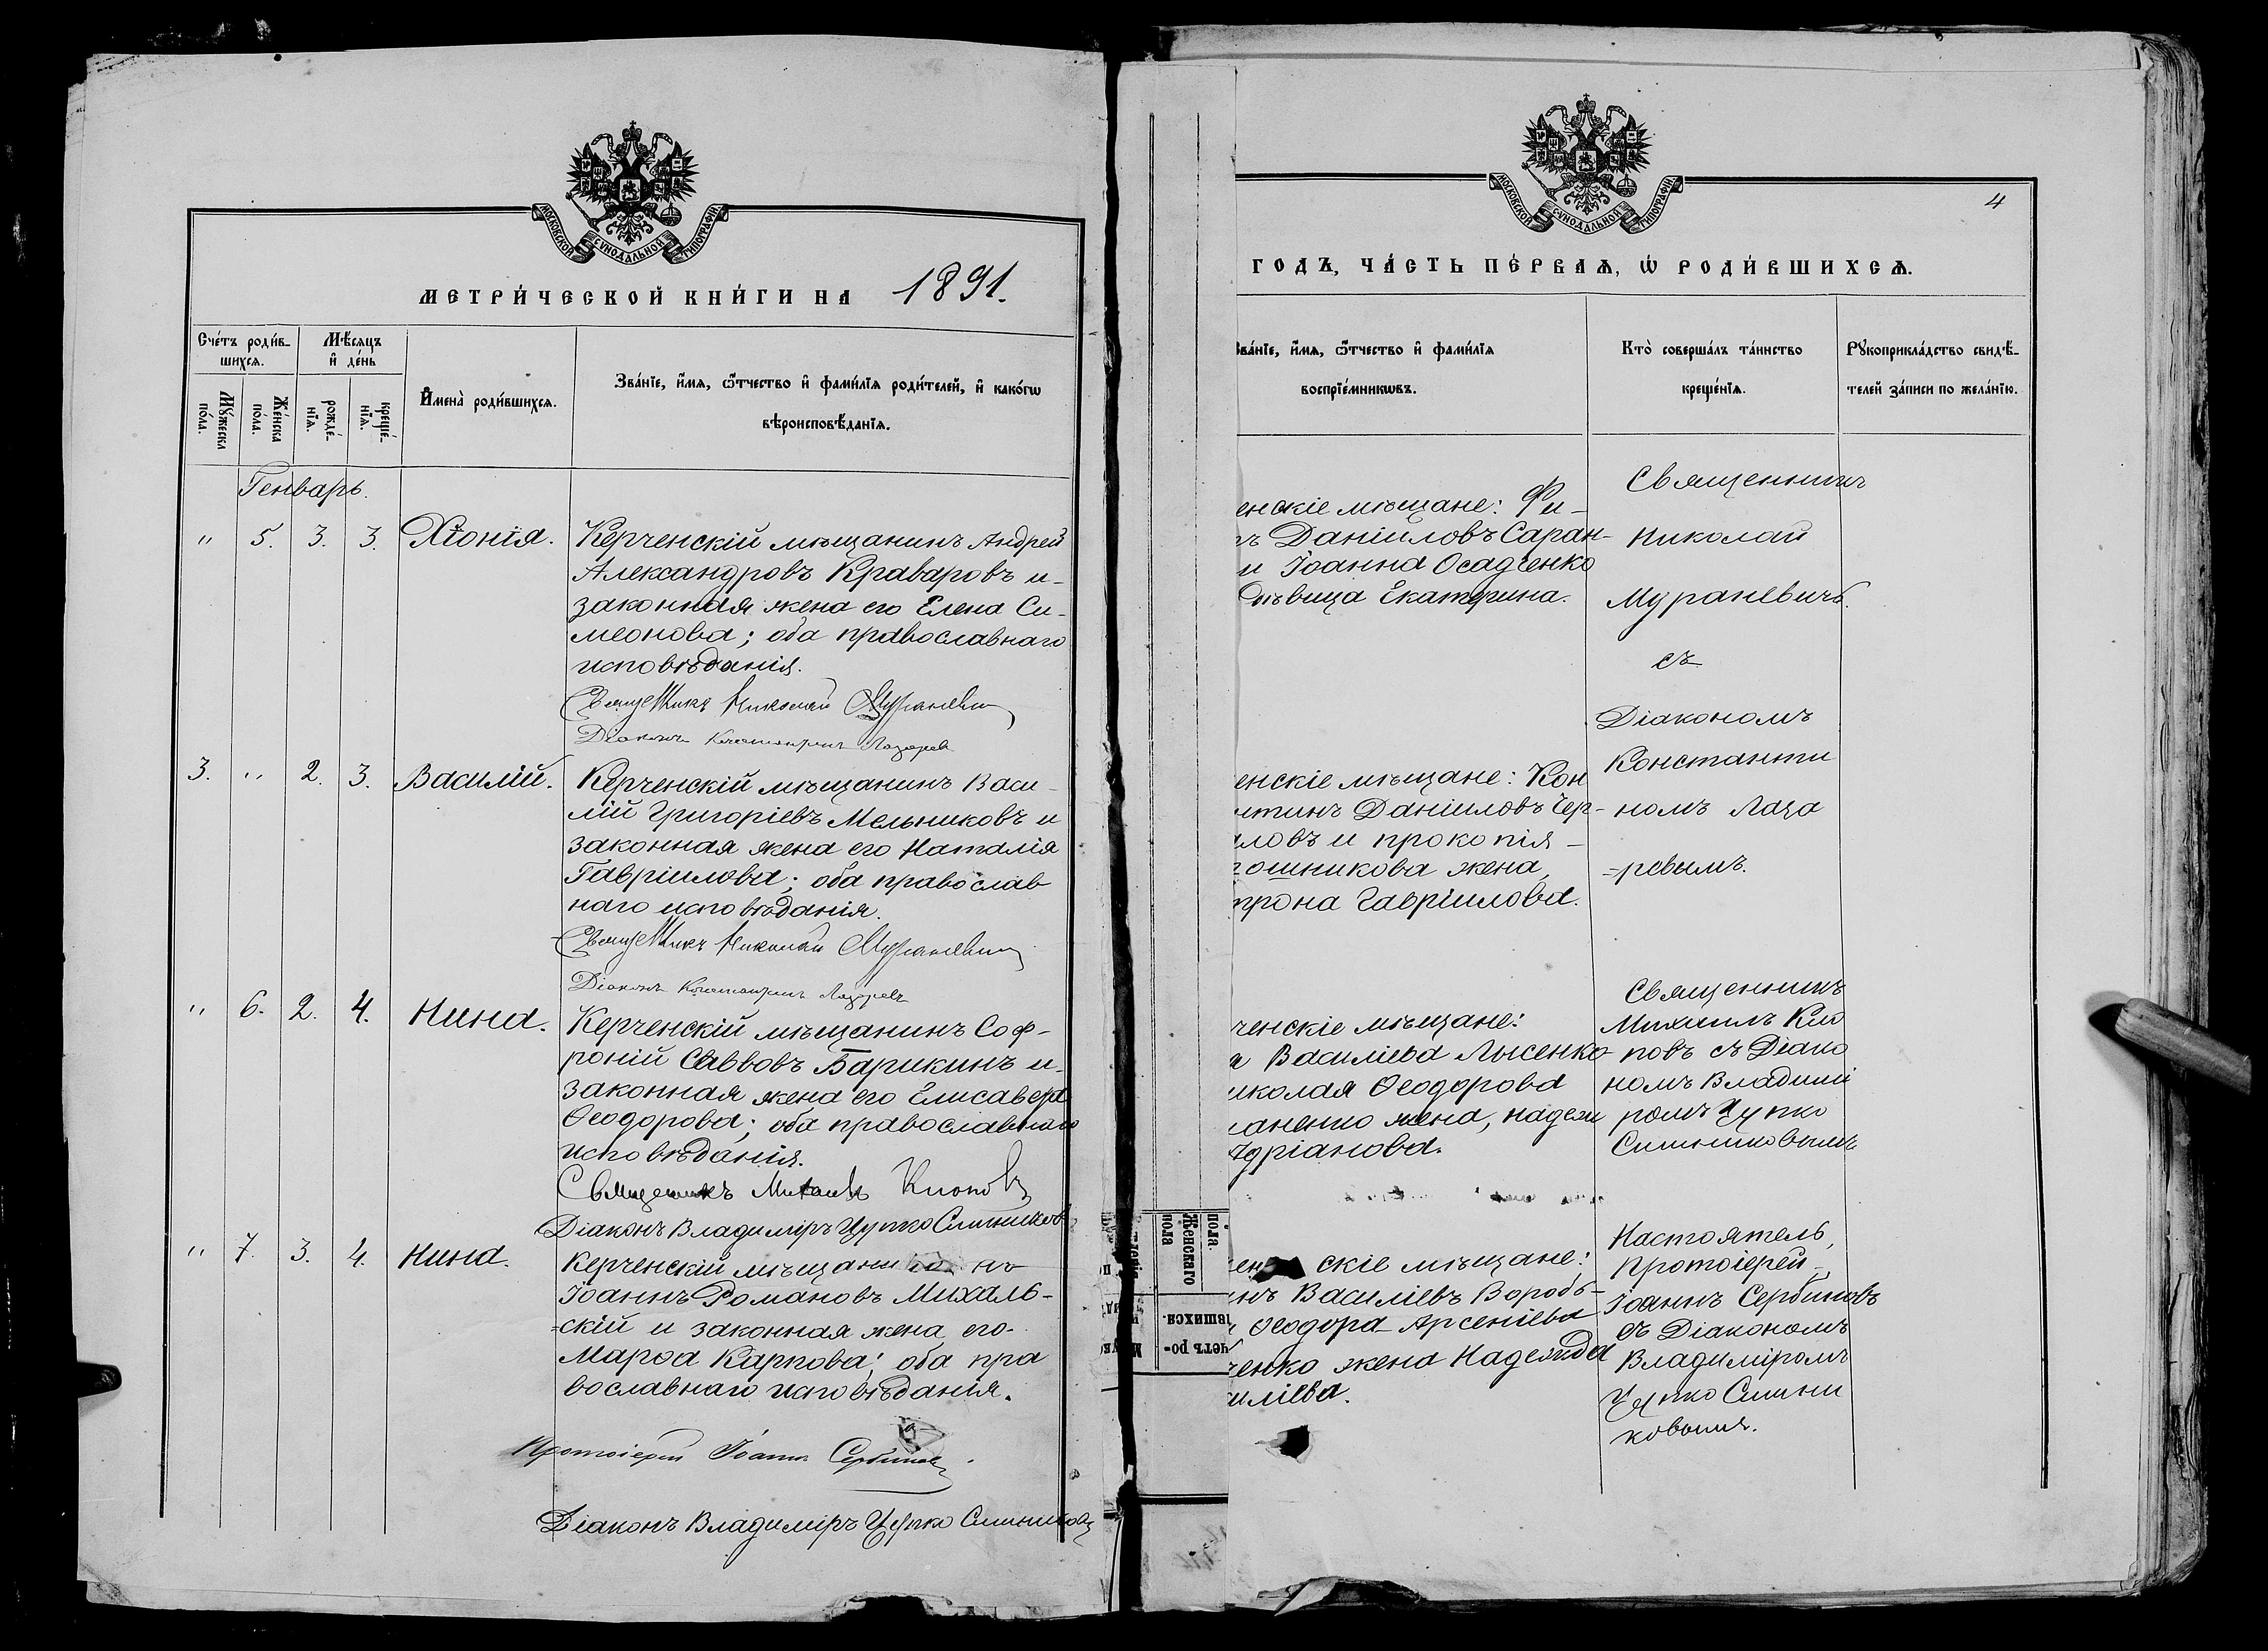 МОСКОВСКОЙ СѴНОДАЛЬНОЙ ТИПОГРАФІИ.
МЕТРИ́ЧЕСКОЙ КНИ́ГИ НА 1891.
Сче́тъ роди́в-
шихсѧ.
Мѣ́сѧцъ
и҆ де́нь
Мꙋ́жеска
по́ла.
Же́нска
по́ла.
рожде́-
нїѧ.
креще́-
нїѧ.
И҆мена̀ роди́вшихсѧ.
Зва́нїе, и҆́мѧ, ѻ҆́тчество и҆ фами́лїѧ роди́телей, и҆ како́гѡ
вѣроисповѣ́данїѧ.
Генварь.
" 5. 3. 3. Хіонія. Керченскій мѣщанинъ Андрей
Александровъ Краваровъ и-
законная жена его Елена Си-
меонова; оба православнаго
исповѣданія.
Священникъ Николай Мураневич
Діаконъ Константинъ Лазарев
3. " 2. 3. Василій. Керченскій мѣщанинъ Васи-
лій Григоріевъ Мельниковъ и
законная жена его Наталія
Гавріилова; оба православ
наго исповѣданія.
Священникъ Николай Мураневич
Діаконъ Константинъ Лазаревъ
" 6. 2. 4. Нина. Керченскій мѣщанинъ Соф-
роній Саввовъ Барикинъ и-
законная жена его Елисавета
Ѳеодорова; оба православнаго
исповѣданія.
Священникъ Михаилъ Клоповъ
Діаконъ Владиміръ Цупко Ситников
" 7. 3. 4. Нина. Керченскій мѣщани нъ
Іоаннъ Романовъ Михаль-
=скій и законная жена его-
Марѳа Карпова; оба пра
вославнаго исповѣданія.
Протоіерей Іоаннъ Сербиновъ
Діаконъ Владиміръ Цупко Ситников
МОСКОВСКОЙ СѴНОДАЛЬНОЙ ТИПОГРАФІИ.
4
ГОДЪ, ЧА́СТЬ ПЕ́РВАѦ, Ѡ҆ РОДИ́ВШИХСѦ.
Зва́нїе, и҆́мѧ, ѻ҆́тчество и҆ фами́лїѧ
воспрїе́мникѡвъ.
Кто̀ соверша́лъ та́инство
креще́нїѧ.
Рꙋкоприкла́дство свидѣ́-
телей за́писи по жела́нїю.
енскіе мѣщане: Фи-
ъ Даніиловъ Саран-
и Іоанна Осадченко
дѣвица Екатерина.
Священникъ
Николай
Мураневичъ
съ
Діакономъ
Константи
номъ Лаза
=ревымъ.
енскіе мѣщане: Кон
нтинъ Даніиловъ Чер-
ловъ и прокопія-
ошникова жена,
трона Гавріилова.
ченскіе мѣщане:
а Василіева Лысенко
иколая Ѳеодорова
аненко жена, надеж
дріанова.
Священникъ
Михаилъ Кло
повъ съ Діако
номъ Владимі
ромъ Цупко
Ситниковымъ
ен скіе мѣщане:
нъ Василіевъ Воробь-
и Ѳеодора Арсеніева
ченко жена Надежда
иліева.
Настоятель,
Протоіерей
Іоаннъ Сербиновъ
съ Діакономъ
Владиміромъ
Цупко Ситни
ковымъ.
пола.
Женскаго
пола
вшихся.
четъ ро-